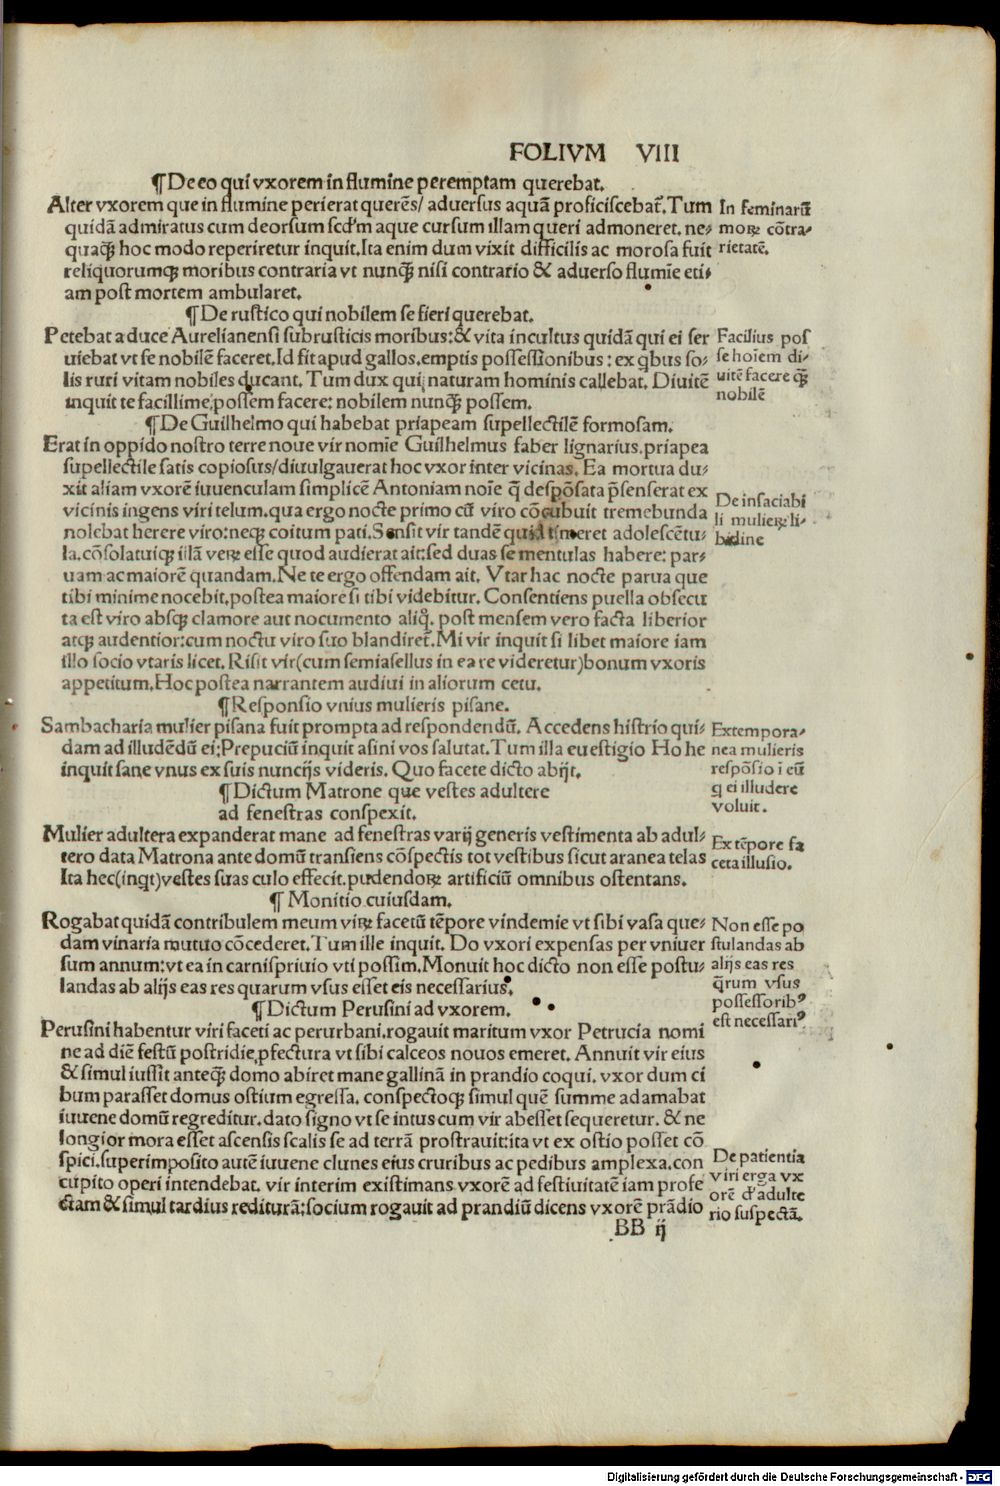 FOLIVM VIII
¶De eo qui vxorem in flumine peremptam querebat.
Alter vxorem que in flumine perierat querēs/ aduersus aquā proficiscebat᷑. Tum
quidā admiratus cum deorsum scd'm aque cursum illam queri admoneret. ne⸗
quaqꝫ hoc modo reperiretur inquit. Ita enim dum vixit difficilis ac morosa fuit
reliquorumqꝫ moribus contraria vt nunqꝫ nisi contrario & aduerso flumīe eti⸗
am post mortem ambularet.
In feminarū
moꝝ cōtra⸗
rietatē.
¶De rustico qui nobilem se fieri querebat.
Petebat a duce Aurelianensi subrusticis moribus: & vita incultus quidā qui ei ser
uiebat vt se nobilē faceret. Id fit apud gallos. emptis possessionibus: ex qbus so⸗
lis ruri vitam nobiles ducant. Tum dux qui naturam hominis callebat. Diuitē
inquit te facillime possem facere: nobilem nunqꝫ possem.
Facilius pos
se hoiem di⸗
uitē facere qꝫ
nobilē
¶De Guilhelmo qui habebat priapeam supellectilē formosam.
Erat in oppido nostro terre noue vir nomīe Guilhelmus faber lignarius. priapea
supellectile satis copiosus/ diuulgauerat hoc vxor inter vicinas. Ea mortua du⸗
xit aliam vxorē iuuenculam simplicē Antoniam noīe q̄ despōsata p̄senserat ex
vicinis ingens viri telum. qua ergo nocte primo cū viro cōcubuit tremebunda
nolebat herere viro: neqꝫ coitum pati. Sensit vir tandē quid timeret adolescētu⸗
la. cōsolatuiqꝫ illā veꝝ esse quod audierat ait: sed duas se mentulas habere: par⸗
uam ac maiorē quandam. Ne te ergo offendam ait. Vtar hac nocte parua que
tibi minime nocebit. postea maiore si tibi videbitur. Consentiens puella obsecu
ta est viro absqꝫ clamore aut nocumento aliq̊. post mensem vero facta liberior
atqꝫ audentior: cum noctu viro suo blandiret᷑. Mi vir inquit si libet maiore iam
illo socio vtaris licet. Risit vir (cum semiasellus in ea re videretur) bonum vxoris
appetitum. Hoc postea narrantem audiui in aliorum cetu.
De insaciabi
li mulieꝝ li⸗
bidine
¶Responsio vnius mulieris pisane.
Sambacharia mulier pisana fuit prompta ad respondendū. Accedens histrio qui⸗
dam ad illudēdū ei: Prepuciū inquit asini vos salutat. Tum illa euestigio Ho he
inquit sane vnus ex suis nuncijs videris. Quo facete dicto abijt.
Extempora⸗
nea mulieris
respōsio ī eū
q ei illudere
voluit.
¶Dictum Matrone que vestes adultere
ad fenestras conspexit.
Mulier adultera expanderat mane ad fenestras varij generis vestimenta ab adul⸗
tero data Matrona ante domū transiens cōspectis tot vestibus sicut aranea telas
Ita hec (inqt) vestes suas culo effecit. pudendoꝝ artificiū omnibus ostentans.
Ex tēpore fa
ceta illusio.
¶ Monitio cuiusdam.
Rogabat quidā contribulem meum viꝝ facetū tēpore vindemie vt sibi vasa que⸗
dam vinaria mutuo cōcederet. Tum ille inquit. Do vxori expensas per vniuer
sum annum: vt ea in carnispriuio vti possim. Monuit hoc dicto non esse postu⸗
landas ab alijs eas res quarum vsus esset eis necessarius.
Non esse po
stulandas ab
alijs eas res
q̄rum vsus
possessoribꝰ
est necessariꝰ
¶Dictum Perusini ad vxorem.
Perusini habentur viri faceti ac perurbani. rogauit maritum vxor Petrucia nomi
ne ad diē festū postridie ꝓfectura vt sibi calceos nouos emeret. Annuit vir eius
& simul iussit anteqꝫ domo abiret mane gallinā in prandio coqui. vxor dum ci
bum parasset domus ostium egressa. conspectoqꝫ simul quē summe adamabat
iuuene domū regreditur. dato signo vt se intus cum vir abesset sequeretur. & ne
longior mora esset ascensis scalis se ad terrā prostrauit: ita vt ex ostio posset cō
spici. superimposito autē iuuene clunes eius cruribus ac pedibus amplexa. con
cupito operi intendebat. vir interim existimans vxorē ad festiuitatē iam profe
ctam & simul tardius rediturā: socium rogauit ad prandiū dicens vxorē prādio
De patientia
viri erga vx
orē d' adulte
rio suspectā.
BB ij
Digitalisierung gefördert durch die Deutsche Forschungsgemeinschaft - DFG